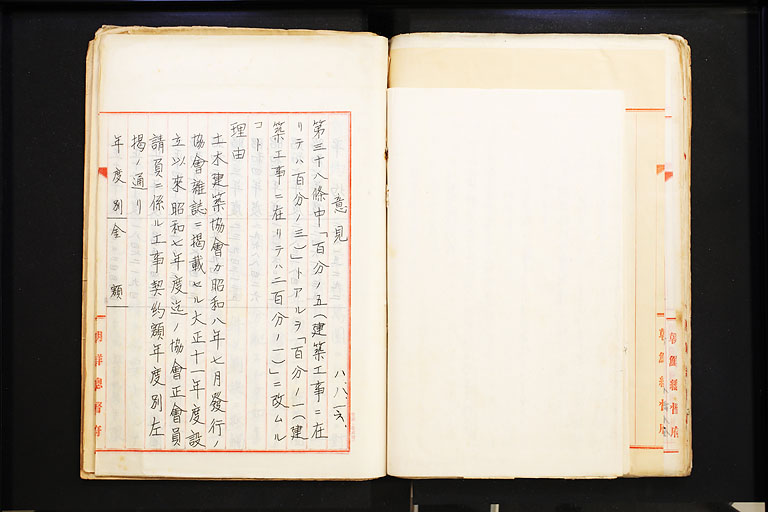 意見
八、八、一六、
第三十八條中「百分ノ五(建築工事ニ在
リテハ百分ノ三)」トアルヲ「百分ノ一(建
築工事ニ在リテハ二百分ノ一)」ニ改ムル
コト
理由
土木建築協會カ昭和八年七月發行ノ
協會雜誌ニ揭載セル大正十一年度設
立以來昭和七年度迄ノ協會正會員
請負ニ係ル工事契約額年度別左
揭ノ通リ
年度別 金額
朝鮮總督府
朝鮮總督府